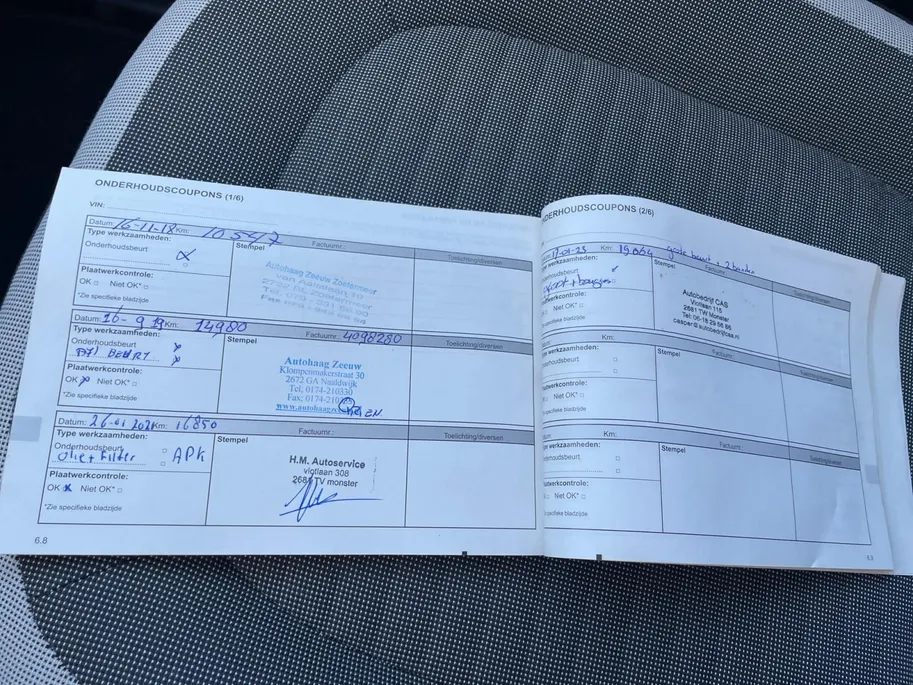 ONDERHOUDSCOUPONS (1/6)
VIN:
Datum: 16-11-18 Km: 10547
Type werkzaamheden:
Onderhoudsbeurt
Stempel
Factuurnr.:
Toelichting/diversen
Autohaag Zeeuw Zoetermeer
Plaatwerkcontrole:
OK □ Niet OK* □
*Zie specifieke bladzijde
Datum: 16-9 19 Km: 14980
Type werkzaamheden:
Onderhoudsbeurt
BEURT
Stempel
Factuurnr.: 4098280
Toelichting/diversen
Autohaag Zeeuw
Klompenmakerstraat 30
2672 GA Naaldwijk
Tel. 0174-210330
Fax: 0174-210
Plaatwerkcontrole:
OK Niet OK* □
*Zie specifieke bladzijde
Datum: 26-01 2021 Km: 16850
Type werkzaamheden:
Onderhoudsbeurt
olie + filter
APK
Stempel
Factuurnr.:
Toelichting/diversen
H.M. Autoservice
viotlaan 308
2681 TV monster
Plaatwerkcontrole:
OK Niet OK* □
*Zie specifieke bladzijde
6.8
ONDERHOUDSCOUPONS (2/6)
Km: 19064 grote beurt + 2 banden
werkzaamheden:
Stempel
Factuurnr.:
Toelichting/diversen
Autobedrijf CAS
Violaan 116
2681 TW Monster
Tel: 06-18 29 56 86
casper@autobedrijfcas.nl
Niet OK* □
specifieke bladzijde
Km:
werkzaamheden:
Onderhoudsbeurt
Stempel
Factuurnr.:
Toelichting/diversen
Plaatwerkcontrole:
Niet OK* □
specifieke bladzijde
Km:
werkzaamheden:
Onderhoudsbeurt
Stempel
Factuurnr.:
Toelichting/diversen
Plaatwerkcontrole:
Niet OK* □
specifieke bladzijde